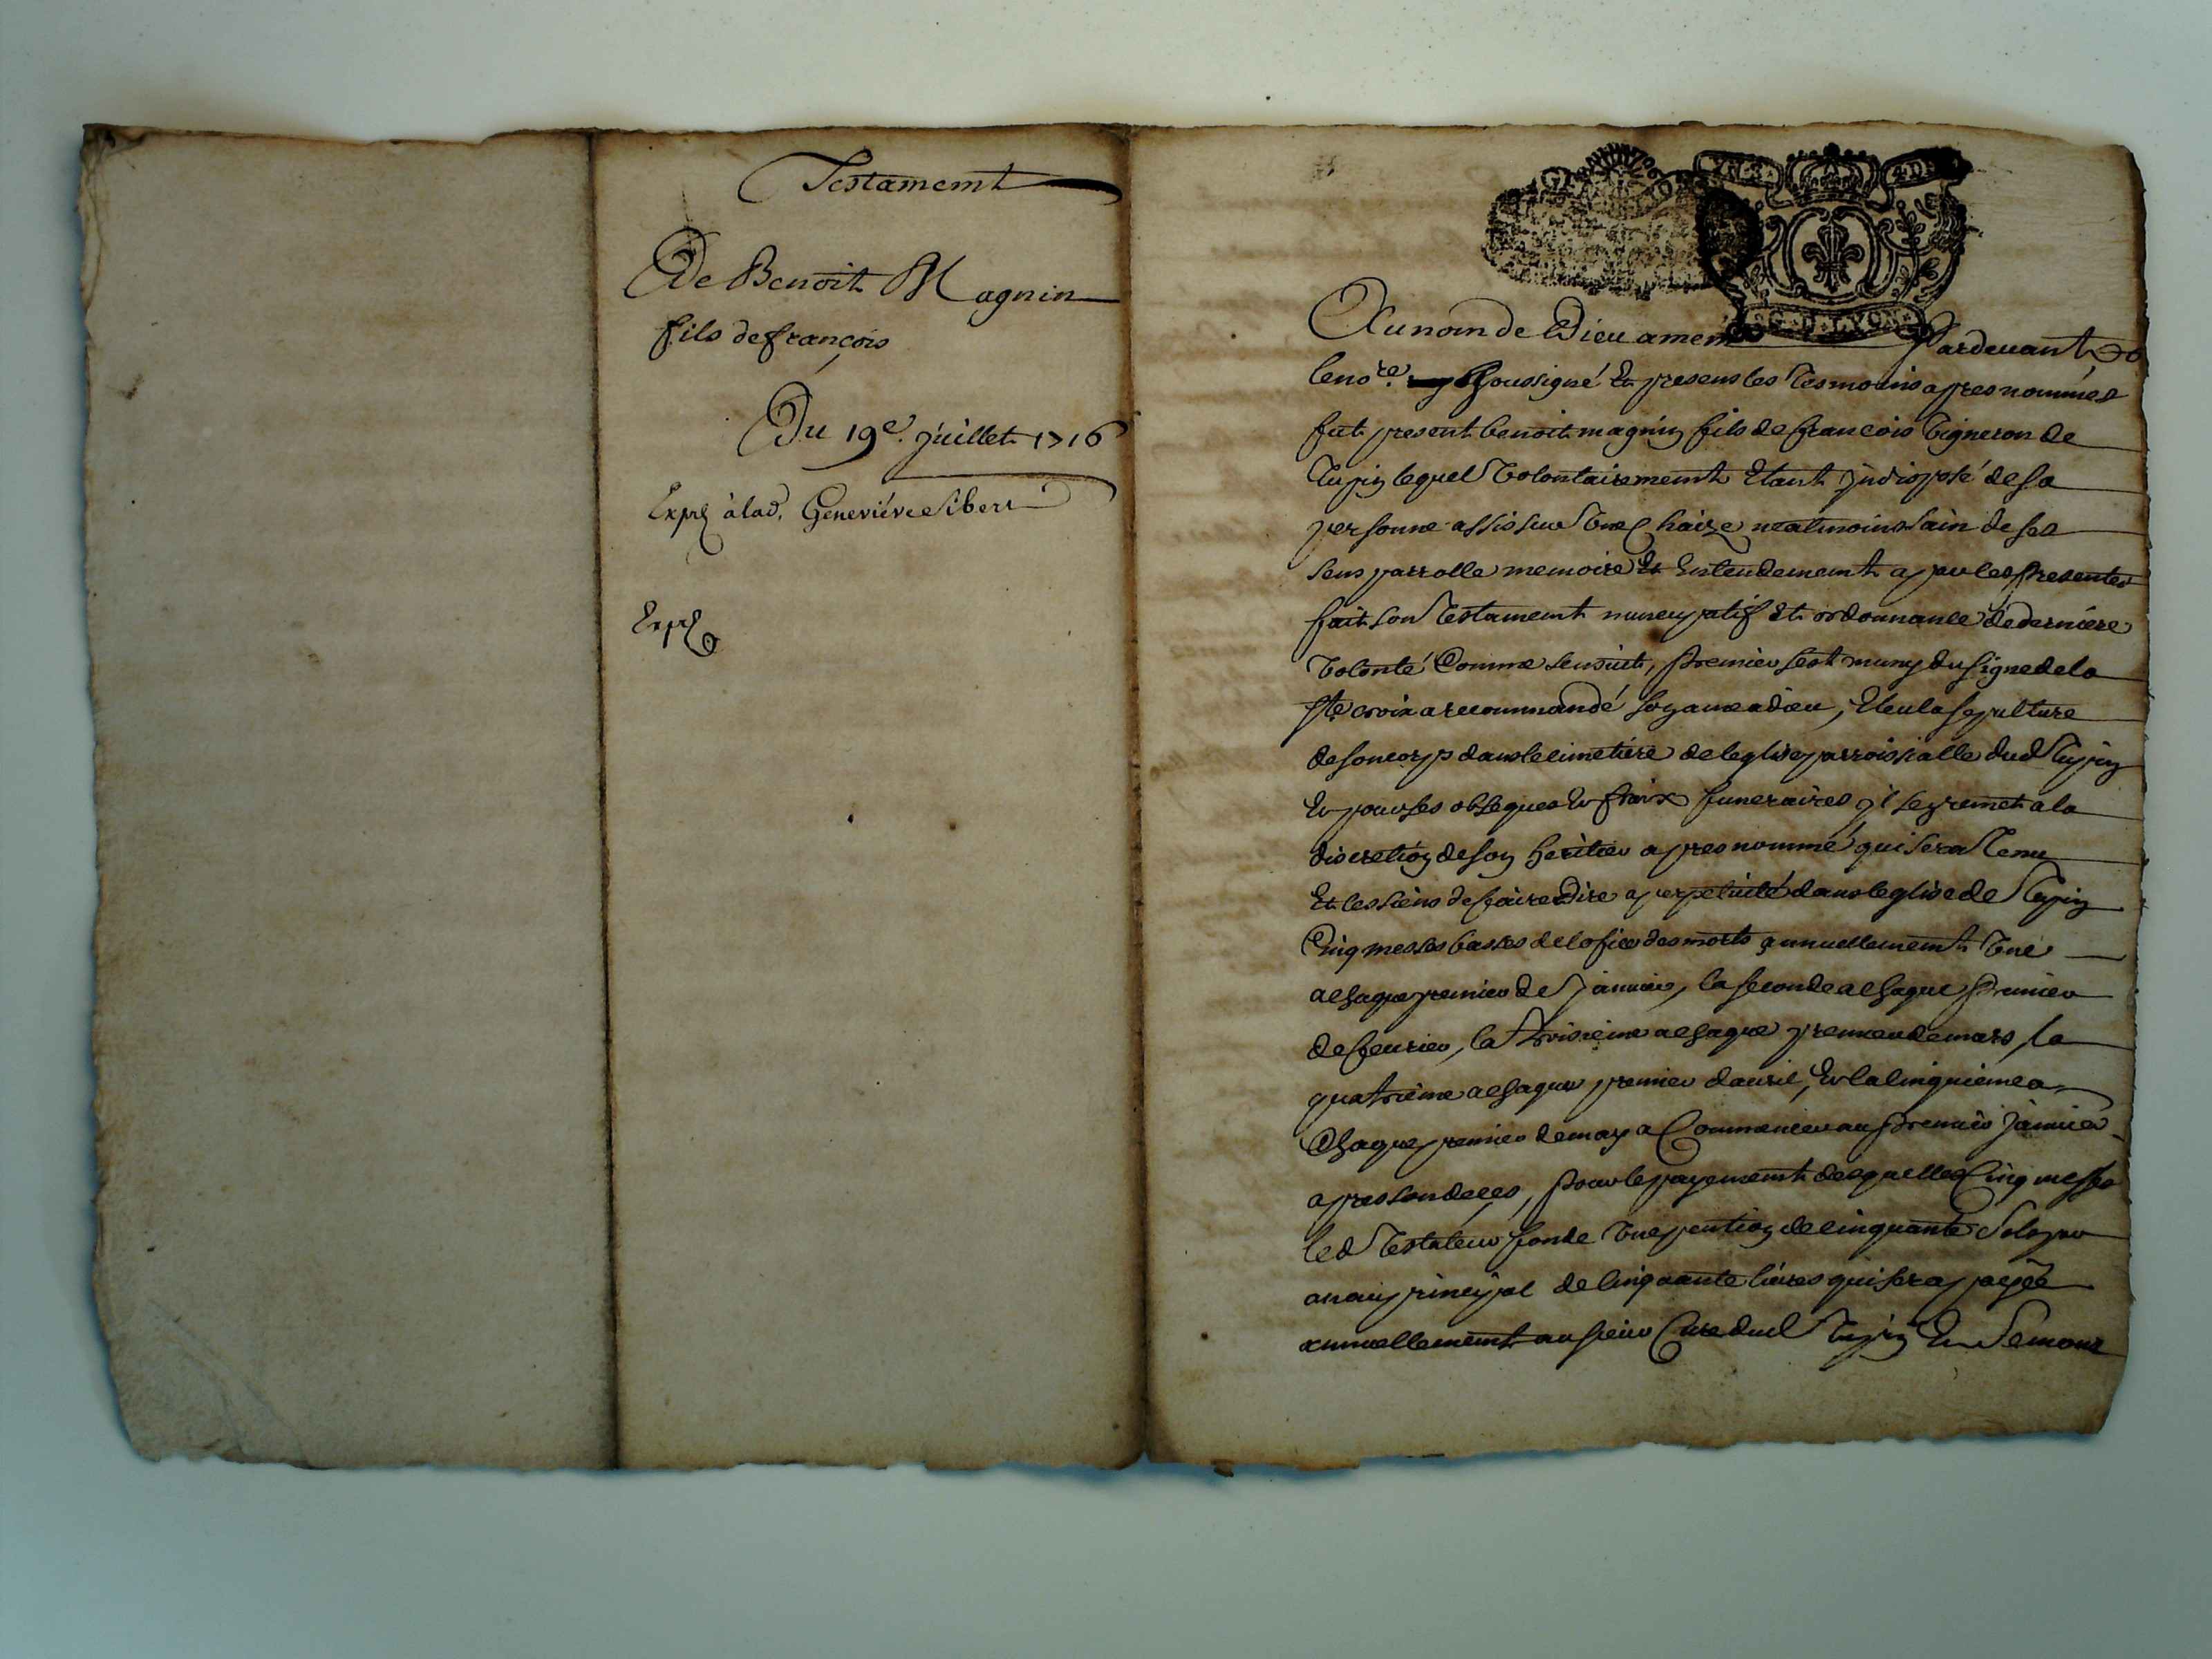 Testament
De Benoit Magnin
fils de françois
Du 19e. juillet 1716
Exp. à lad. Geneviéve Sibert
Exp.
GE. DE LYON
Au nom de Dieu amen Pardevant
le nore. soussigné Et presens les Tesmoins apres nommés
fut present benoit magnin fils de françois Vigneron de
Tupin lequel Volontairement Etant jndisposé de sa
personne assis sur Une Chaize neatmoins sain de ses
sens parrolle memoire Et Entendement a par les presentes
fait son Testament nuncupatif Et ordonnance de derniere
Volonté Comme sensuit, premier sest muny du signe de la
ste croix a recommandé son ame a dieu, Eleu la sepulture
de son corps dans le cimetiere de leglise parroissialle dud Tupin
Et pour ses obseques Et fraix funeraires jl se remet a la
discretion de son heritier apres nommé qui sera Tenu
Et les siens de faire Dire a perpetuité dans leglise de Tupin
Cinq messes basses de lofice des morts annuellement Une
a chaque premier de janvier, la seconde a chaque premier
de feurier, la troisieme a chaque premier de mars, la
quatrieme a chaque premier dauril, Et la cinquieme a
Chaque premier de may a Commencer au premier januier
apres son deces, pour le payement desquelles Cinq messes
led Testateur fonde Une pention de cinquante Sols par
an au principal de Cinquante liures qui sera payée
annuellement au sieur Curé dud Tupin Et Semons